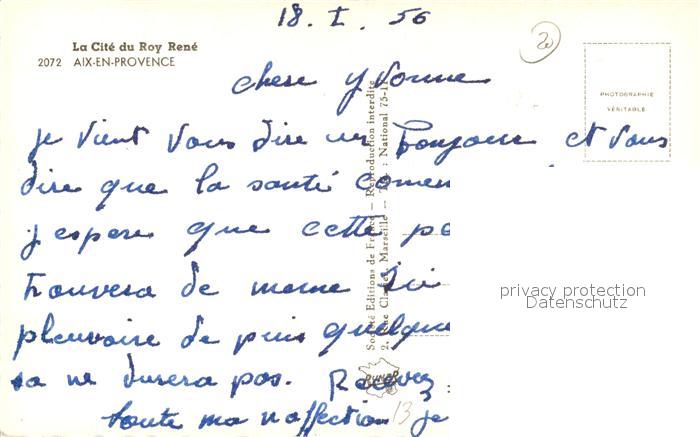 18. I. 56
20
La Cité du Roy René
2072 AIX-EN-PROVENCE
PHOTOGRAPHIE
VÉRITABLE
chere yvonne
je vient vous dire un bonjour et vous
dire que la santé
j espere que cette
trouvera de meme Ici
pleuvoire de puis
sa ne durera pas. Recevez
toute ma n affection je
13
Société Editions de France — Reproduction interdite
Marseille — National 75-11
privacy protection
Datenschutz